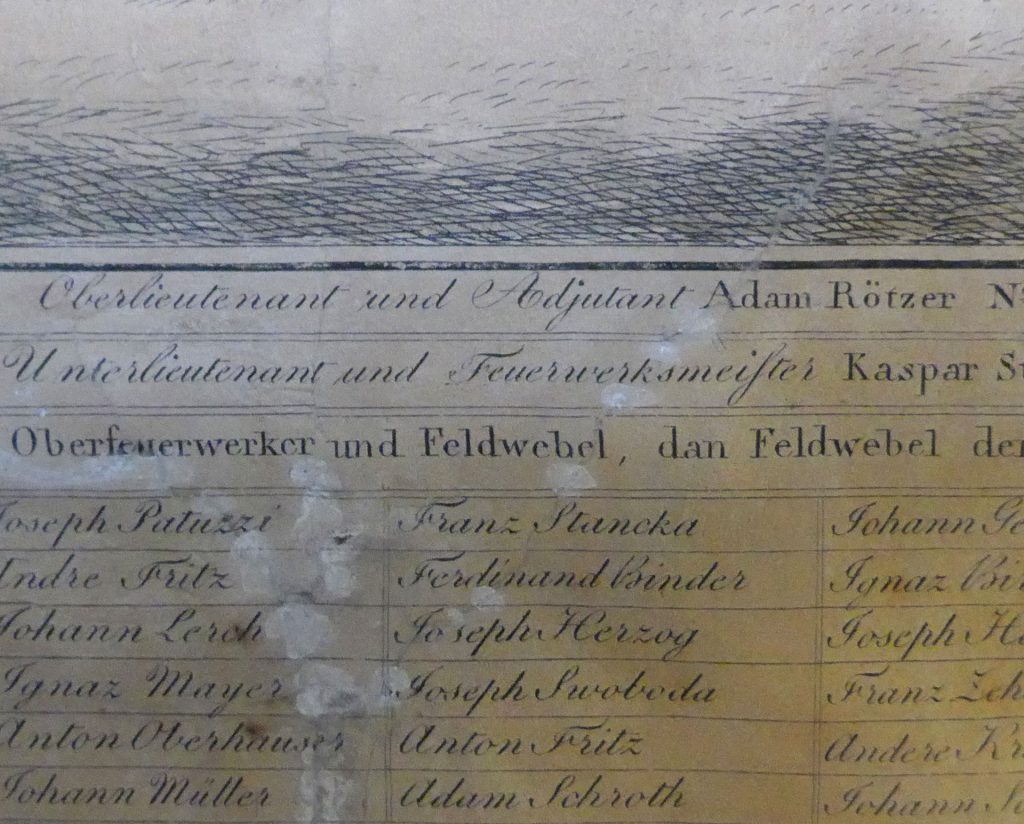 Oberlieutenant und Adjutant Adam Rötzer
Unterlieutenant und Feuerwerksmeiſter Kaspar
Oberfeuerwerker und Feldwebel, dan Feldwebel
Joseph Patuzzi Franz Stancka Johann
Andre Fritz Ferdinand Binder Ignaz
Johann Lerch Joseph Herzog Joseph
Ignaz Mayer Joseph Swoboda Franz
Anton Oberhauser Anton Fritz Andere
Johann Müller Adam Schroth Johann